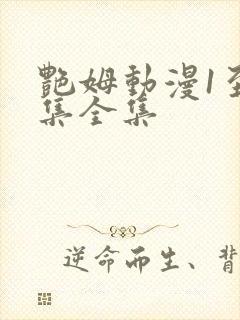 艷姆動漫1至
集全集
逆命而生、背